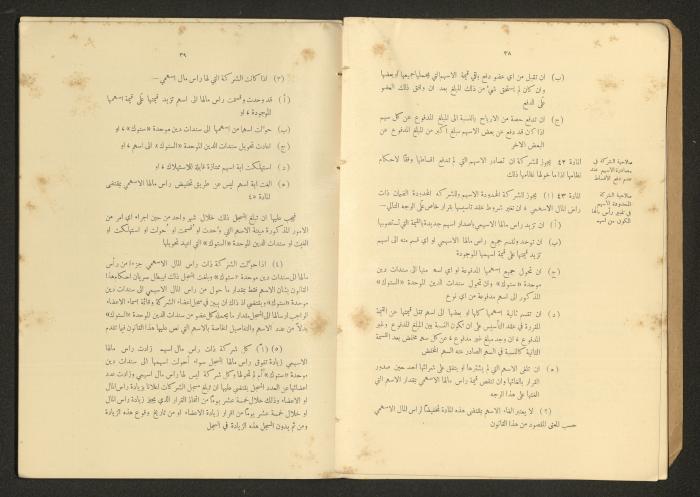 ٣٨
(ب) ان تقبل من اي عضو دفع باقي قيمة الاسهم التي يحملها جميعها او بعضها
وان كان لم يستحق شيء من ذلك المبلغ بعد ان وافق ذلك العضو
على الدفع
(ج) ان تدفع حصة من الارباح بالنسبة الى المبلغ المدفوع عن كل سهم
اذا كان قد دفع عن بعض الاسهم مبلغ اكبر من المبلغ المدفوع عن
البعض الآخر
صلاحية الشركة في
بمصادرة الاسهم عند
عدم دفع الاقساط
المادة ٤٢ يجوز للشركة ان تصادر الاسهم التي لم تدفع اقساطها وفقًا لاحكام
نظامها اذا ما خولها نظامها ذلك
صلاحية الشركة
المحدودة الاسهم
في تغيير رأس مالها
المكون من اسهم
المادة ٤٣ (١) يجوز للشركة المحدودة الاسهم وللشركة المحدودة الضمان ذات
راس المال الاسهمي ، ان تغير شروط عقد تأسيسها بقرار خاص على الوجه التالي:—
(أ) ان تزيد راس مالها الاسهمي باصدار اسهم جديدة بالقيمة التي تستصوبها
(ب) ان توحد وتقسم جميع راس مالها الاسهمي او اي قسم منه الى اسهم
تزيد قيمتها على قيمة اسهمها الموجودة
(ج) ان تحول جميع اسهمها المدفوعة او اي اسهم منها الى سندات دين
موحدة «ستوك» وان تحول سندات الدين الموحدة «الستوك»
المذكور الى اسهم مدفوعة من اي نوع
(د) ان تقسم ثانية اسهمها كلها او بعضها الى اسهم تقل قيمتها عن القيمة
المقررة في عقد التأسيس على ان تكون النسبة بين المبلغ المدفوع وغير
المدفوع ، ان وجد مبلغ غير مدفوع ، عن كل سهم مخفض بعد القسمة
الثانية كالنسبة في السهم الصادر عنه السهم المخفض
(ه) ان تلغي الاسهم التي لم يشترها او يتفق على شرائها احد حين صدور
القرار بالغائها وان تنقص قيمة راس مالها الاسهمي بمقدار الاسهم التي
الغتها على هذا الوجه
(٢) لا يعتبر الغاء الاسهم بمقتضى هذه المادة تخفيضًا لراس المال الاسهمي
حسب المعنى المقصود من هذا القانون
٣٩
(٣) اذا كانت الشركة التي لها راس مال اسهمي —
(أ) قد وحدت وقسمت راس مالها الى اسهم تزيد قيمتها على قيمة اسهمها
الموجودة ، او
(ب) حولت اسهمًا من اسهمها الى سندات دين موحدة «ستوك» ، او
(ج) اعادت تحويل سندات الدين الموحدة «الستوك» الى اسهم ، او
(د) استهلكت اية اسهم ممتازة قابلة للاستهلاك ، او
(ه) الغت اية اسهم ليس عن طريق تخفيض راس مالها الاسهمي بمقتضى
المادة ٤٥
فيجب عليها ان تبلغ المسجل ذلك خلال شهر واحد من حين اجراء اي امر من
الامور المذكورة مبينة الاسهم التي وحدت او قسمت او حولت او استهلكت او
الغيت او سندات الدين الموحدة «الستوك» التي اعيد تحويلها
(٤) اذا حولت الشركة ذات راس المال الاسهمي جزءًا من رأس
مالها الى سندات دين موحدة «ستوك» وبلغت المسجل ذلك فيبطل سريان احكام هذا
القانون بشأن الاسهم فقط بمقدار ما حول من راس المال الاسهمي الى سندات دين
موحدة «ستوك» ويقتضي اذ ذاك ان يبين في سجل اعضاء الشركة وقائمة اسماء الاعضاء
الواجب ارسالها الى المسجل مقدار ما يحمله كل عضو من سندات الدين الموحدة «الستوك»
بدلاً من عدد الاسهم والتفاصيل الخاصة بالاسهم التي نص عليها هذا القانون فيما تقدم
(٥) (أ) كل شركة ذات راس مال اسهمي زادت راس مالها
الاسهمي زيادة تفوق راس مالها المسجل سواء أحولت اسهمها الى سندات دين
موحدة «ستوك» أم لم تحولها وكل شركة ليس لها راس مال اسهمي وزادت عدد
اعضائها عن العدد المسجل يقتضى عليها ان تبلغ مسجل الشركات اعلانًا بزيادة راس المال
او الاعضاء وذلك خلال خمسة عشر يومًا من اتخاذ القرار الذي يجيز زيادة راس المال
او خلال خمسة عشر يومًا من اقرار زيادة الاعضاء او من تاريخ وقوع هذه الزيادة
ومن ثم يدون المسجل هذه الزيادة في السجل